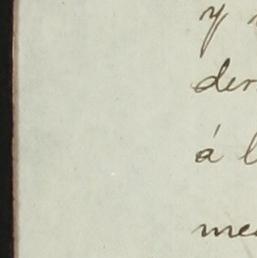 y
der
á l
me